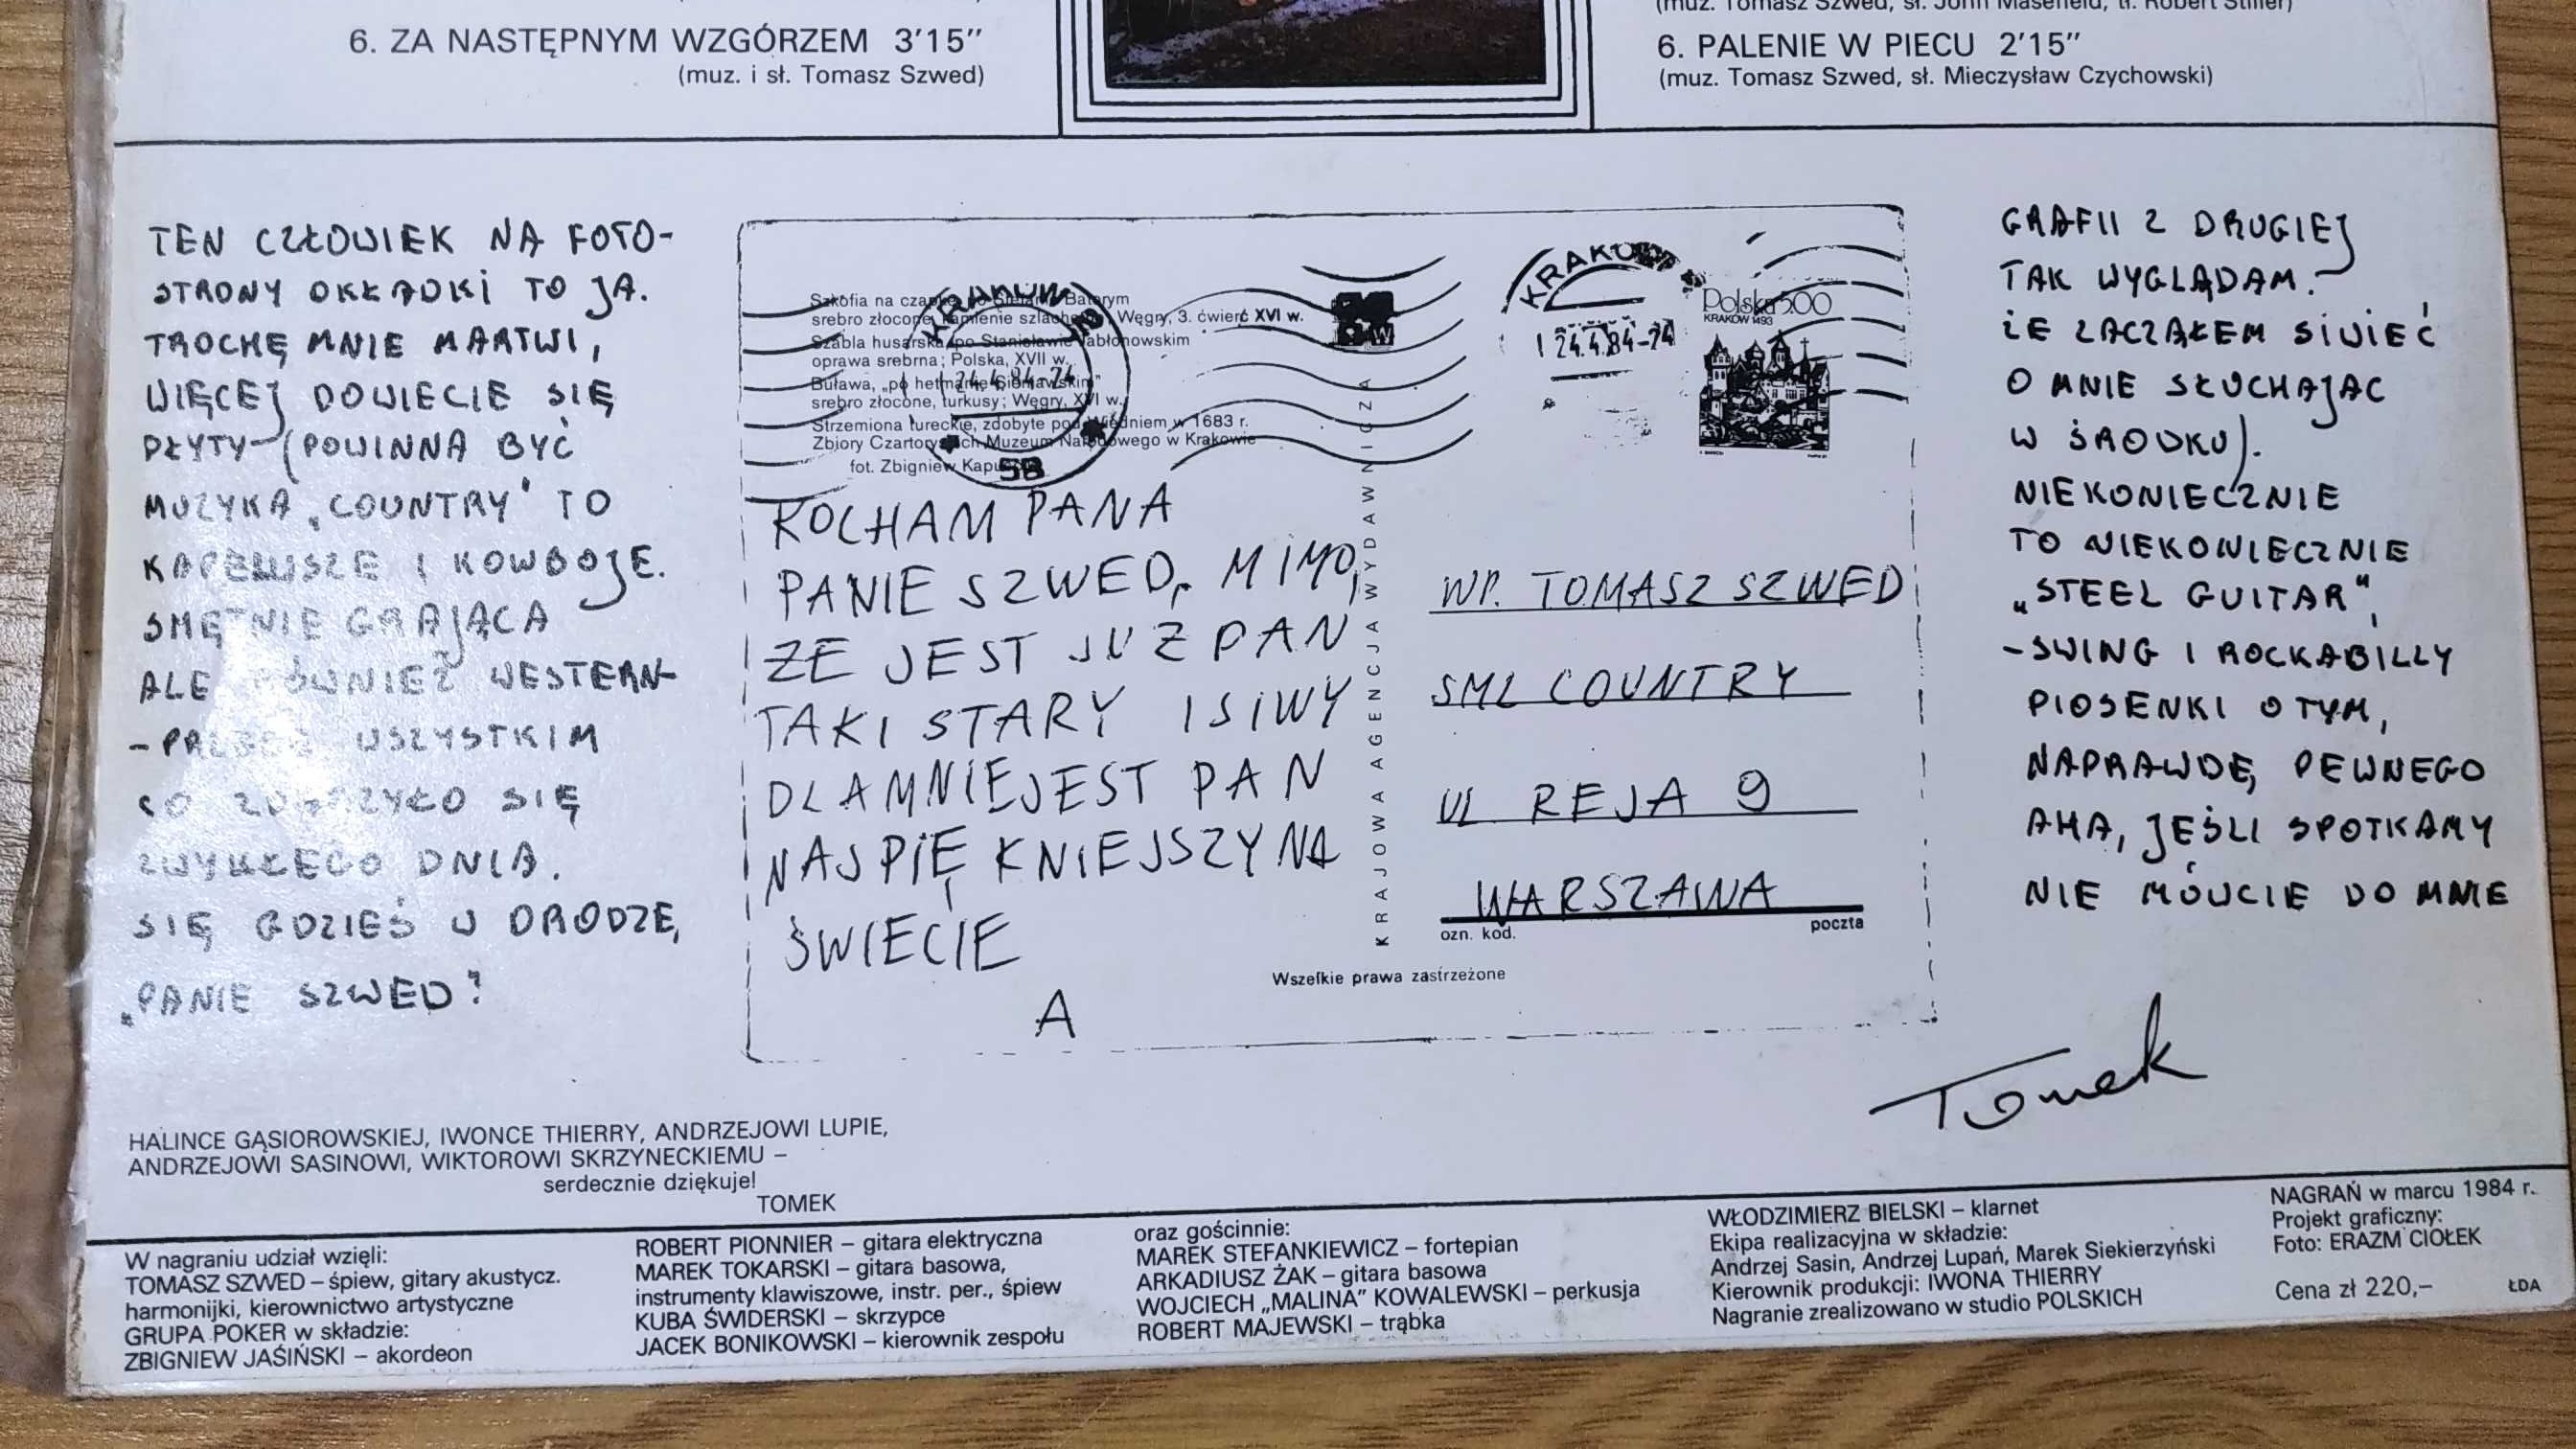 6. ZA NASTĘPNYM WZGÓRZEM 3'15"
(muz. i sł. Tomasz Szwed)
(muz. Tomasz Szwed, sł. John Masefield, tł. Robert Stiller)
6. PALENIE W PIECU 2'15"
(muz. Tomasz Szwed, sł. Mieczysław Czychowski)
TEN CZŁOWIEK NA FOTO-
STRONY OKŁADKI TO JA.
TROCHĘ MNIE MARTWI,
WIĘCEJ DOWIECIE SIĘ
PŁYTY (POWINNA BYĆ
MUZYKA „COUNTRY" TO
KAPELUSZE I KOWBOJE.
SMĘTNIE GRAJĄCA
ALE RÓWNIEŻ WESTERN-
-PRZEDE WSZYSTKIM
CO ZDARZYŁO SIĘ
ZWYKŁEGO DNIA.
SIĘ GDZIEŚ W DRODZE,
„PANIE SZWED?
Szkofia na czapkę po Stefanie Batorym
srebro złocone, kamienie szlachetne, Węgry, 3. ćwierć XVI w.
Szabla husarska po Stanisławie Jabłonowskim
oprawa srebrna; Polska, XVII w.
Buława, „po hetmanie Sieniawskim"
srebro złocone, turkusy; Węgry, XVI w.
Strzemiona tureckie, zdobyte pod Wiedniem w 1683 r.
Zbiory Czartoryskich Muzeum Narodowego w Krakowie
fot. Zbigniew
KRAKÓW
24.4.84-24
5B
KRAKÓW
1 24.4.84-24
Polska 5.00
KRAKÓW 1493
KOCHAM PANA
PANIE SZWED, MIMO,
ŻE JEST JUZ PAN
TAKI STARY I SIWY
DLAMNIEJEST PAN
NAJPIĘKNIEJSZY NA
ŚWIECIE
A
KRAJOWA AGENCJA WYDAWNICZA
WP. TOMASZ SZWED
SML COUNTRY
UL REJA 9
WARSZAWA
ozn. kod. poczta
Wszelkie prawa zastrzeżone
GRAFII Z DRUGIEJ
TAK WYGLĄDAM.
ŻE ZACZĄŁEM SIWIEĆ
O MNIE SŁUCHAJĄC
W ŚRODKU).
NIEKONIECZNIE
TO NIEKONIECZNIE
„STEEL GUITAR",
-SWING I ROCKABILLY
PIOSENKI O TYM,
NAPRAWDĘ PEWNEGO
AHA, JEŚLI SPOTKAMY
NIE MÓWCIE DO MNIE
Tomek
HALINCE GĄSIOROWSKIEJ, IWONCE THIERRY, ANDRZEJOWI LUPIE,
ANDRZEJOWI SASINOWI, WIKTOROWI SKRZYNECKIEMU –
serdecznie dziękuje!
TOMEK
W nagraniu udział wzięli:
TOMASZ SZWED – śpiew, gitary akustycz.
harmonijki, kierownictwo artystyczne
GRUPA POKER w składzie:
ZBIGNIEW JAŚIŃSKI – akordeon
ROBERT PIONNIER – gitara elektryczna
MAREK TOKARSKI – gitara basowa,
instrumenty klawiszowe, instr. per., śpiew
KUBA ŚWIDERSKI – skrzypce
JACEK BONIKOWSKI – kierownik zespołu
oraz gościnnie:
MAREK STEFANKIEWICZ – fortepian
ARKADIUSZ ŻAK – gitara basowa
WOJCIECH „MALINA" KOWALEWSKI – perkusja
ROBERT MAJEWSKI – trąbka
WŁODZIMIERZ BIELSKI – klarnet
Ekipa realizacyjna w składzie:
Andrzej Sasin, Andrzej Lupań, Marek Siekierzyński
Kierownik produkcji: IWONA THIERRY
Nagranie zrealizowano w studio POLSKICH
NAGRAŃ w marcu 1984 r.
Projekt graficzny:
Foto: ERAZM CIOŁEK
Cena zł 220,–
ŁDA